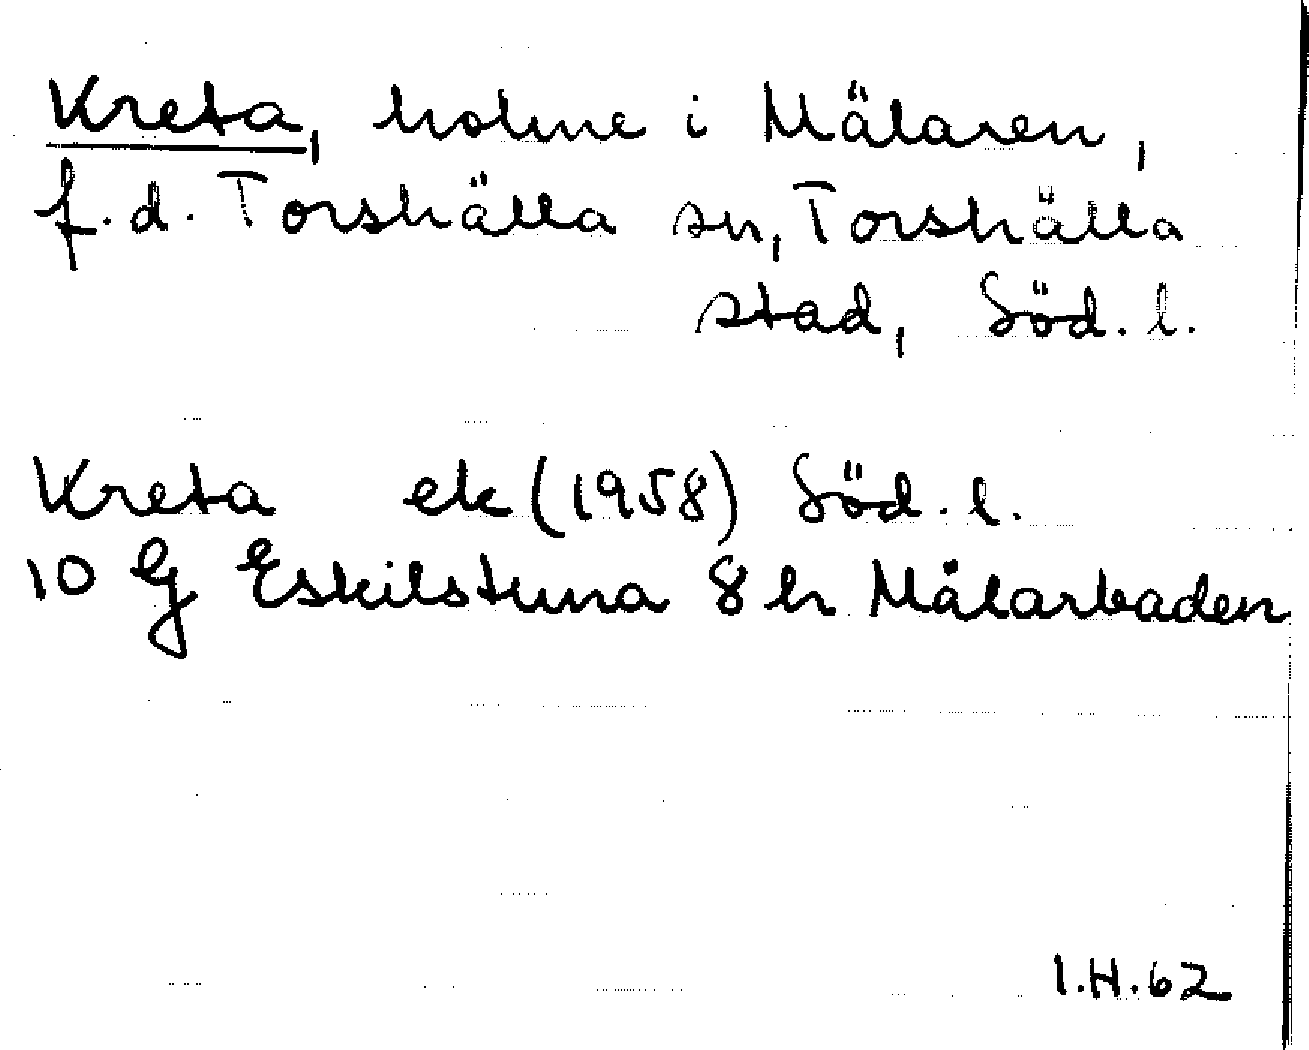 Kreta, holme i Mälaren,
f.d. Torshälla sn, Torshälla
stad, Söd. l.
Kreta ek (1958) Söd. l.
10 G Eskilstuna 8 h Mälarbaden
I.H.62